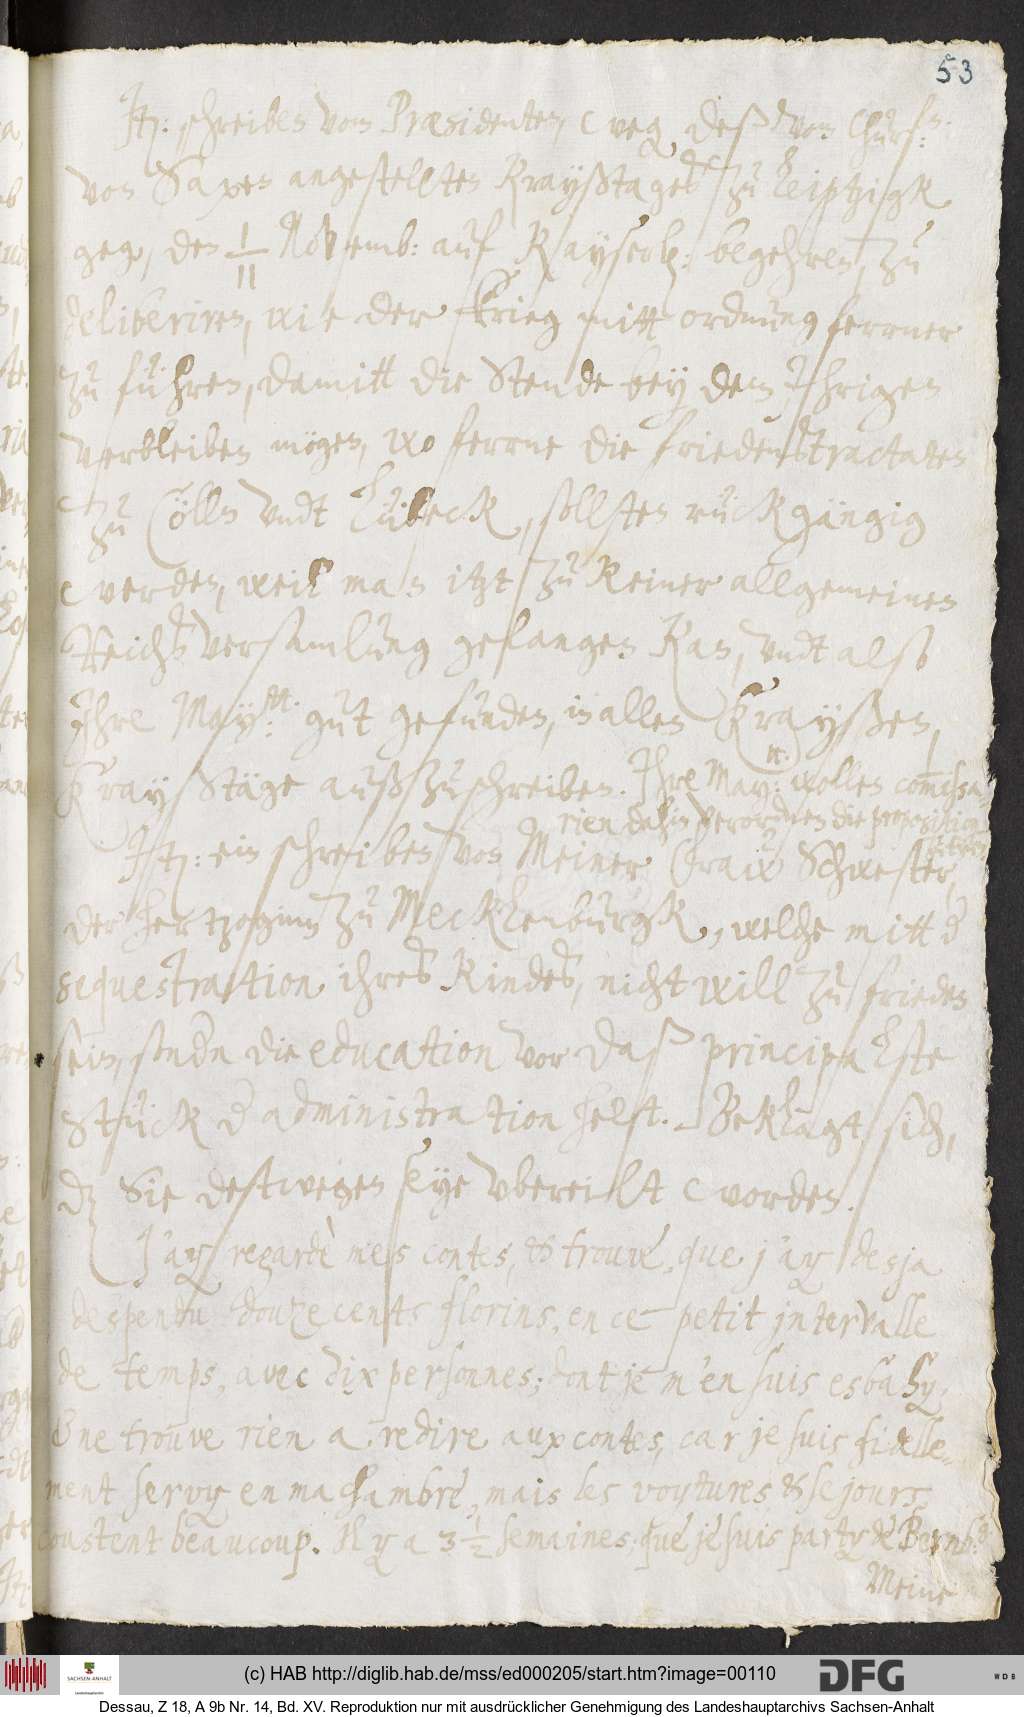 53
Jt: schreiben vom Præsidenten, weg. deß von Churfn:
von Saxen angestellten Krayßtages zu Leiptzigk
geg, den 1/11 Novemb: auf Kayserl: begehren, zu
deliberiren, wie der Krieg mitt ordnung ferrner
zu führen, damitt die Stende bey dem Ihrigen
verbleiben mögen, wo ferrne die friedenstractaten
zu Cölln vndt Lübeck, sollten rückgängig
werden, weil man itzt zu keiner allgemeinen
Reichsversamlung gelangen kan, vndt also
Ihre Maytt: gut gefunden, in allen Krayßen,
Kraystäge außzuschreiben. Ihre Maytt: wollen comissa-
rien dahin verordnen die proposition
zu thun
Jt: ein schreiben von Meiner Fraw Schwester,
der Hertzoginn zu Mecklenburgk, welche mitt d
sequestration ihres Kindes, nicht will zu frieden
sein, sondn die education vor daß principaleste
Stück d administration helt. Beklagt sich,
dz Sie destwegen seye vbereilt worden.
J'ay regardè mes contes, & trouvè, que j'ay desja
despendu douze cents florins, en ce petit intervalle
de temps, avec dix personnes; dont je m'en suis esbahy,
& ne trouve rien a redire aux contes, car je suis fidelle-
ment servy en ma chambre, mais les voytures & sejours
coustent beaucoup. Il y a 3 1/2 semaines, que je suis party de Bernb:g
Meine
(c) HAB http://diglib.hab.de/mss/ed000205/start.htm?image=00110
SACHSEN-ANHALT
DFG
WDB
Dessau, Z 18, A 9b Nr. 14, Bd. XV. Reproduktion nur mit ausdrücklicher Genehmigung des Landeshauptarchivs Sachsen-Anhalt